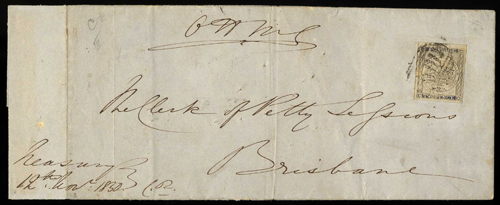 O H M S
The Clerk of Petty Sessions
Brisbane
Treasury
12th Novr. 185